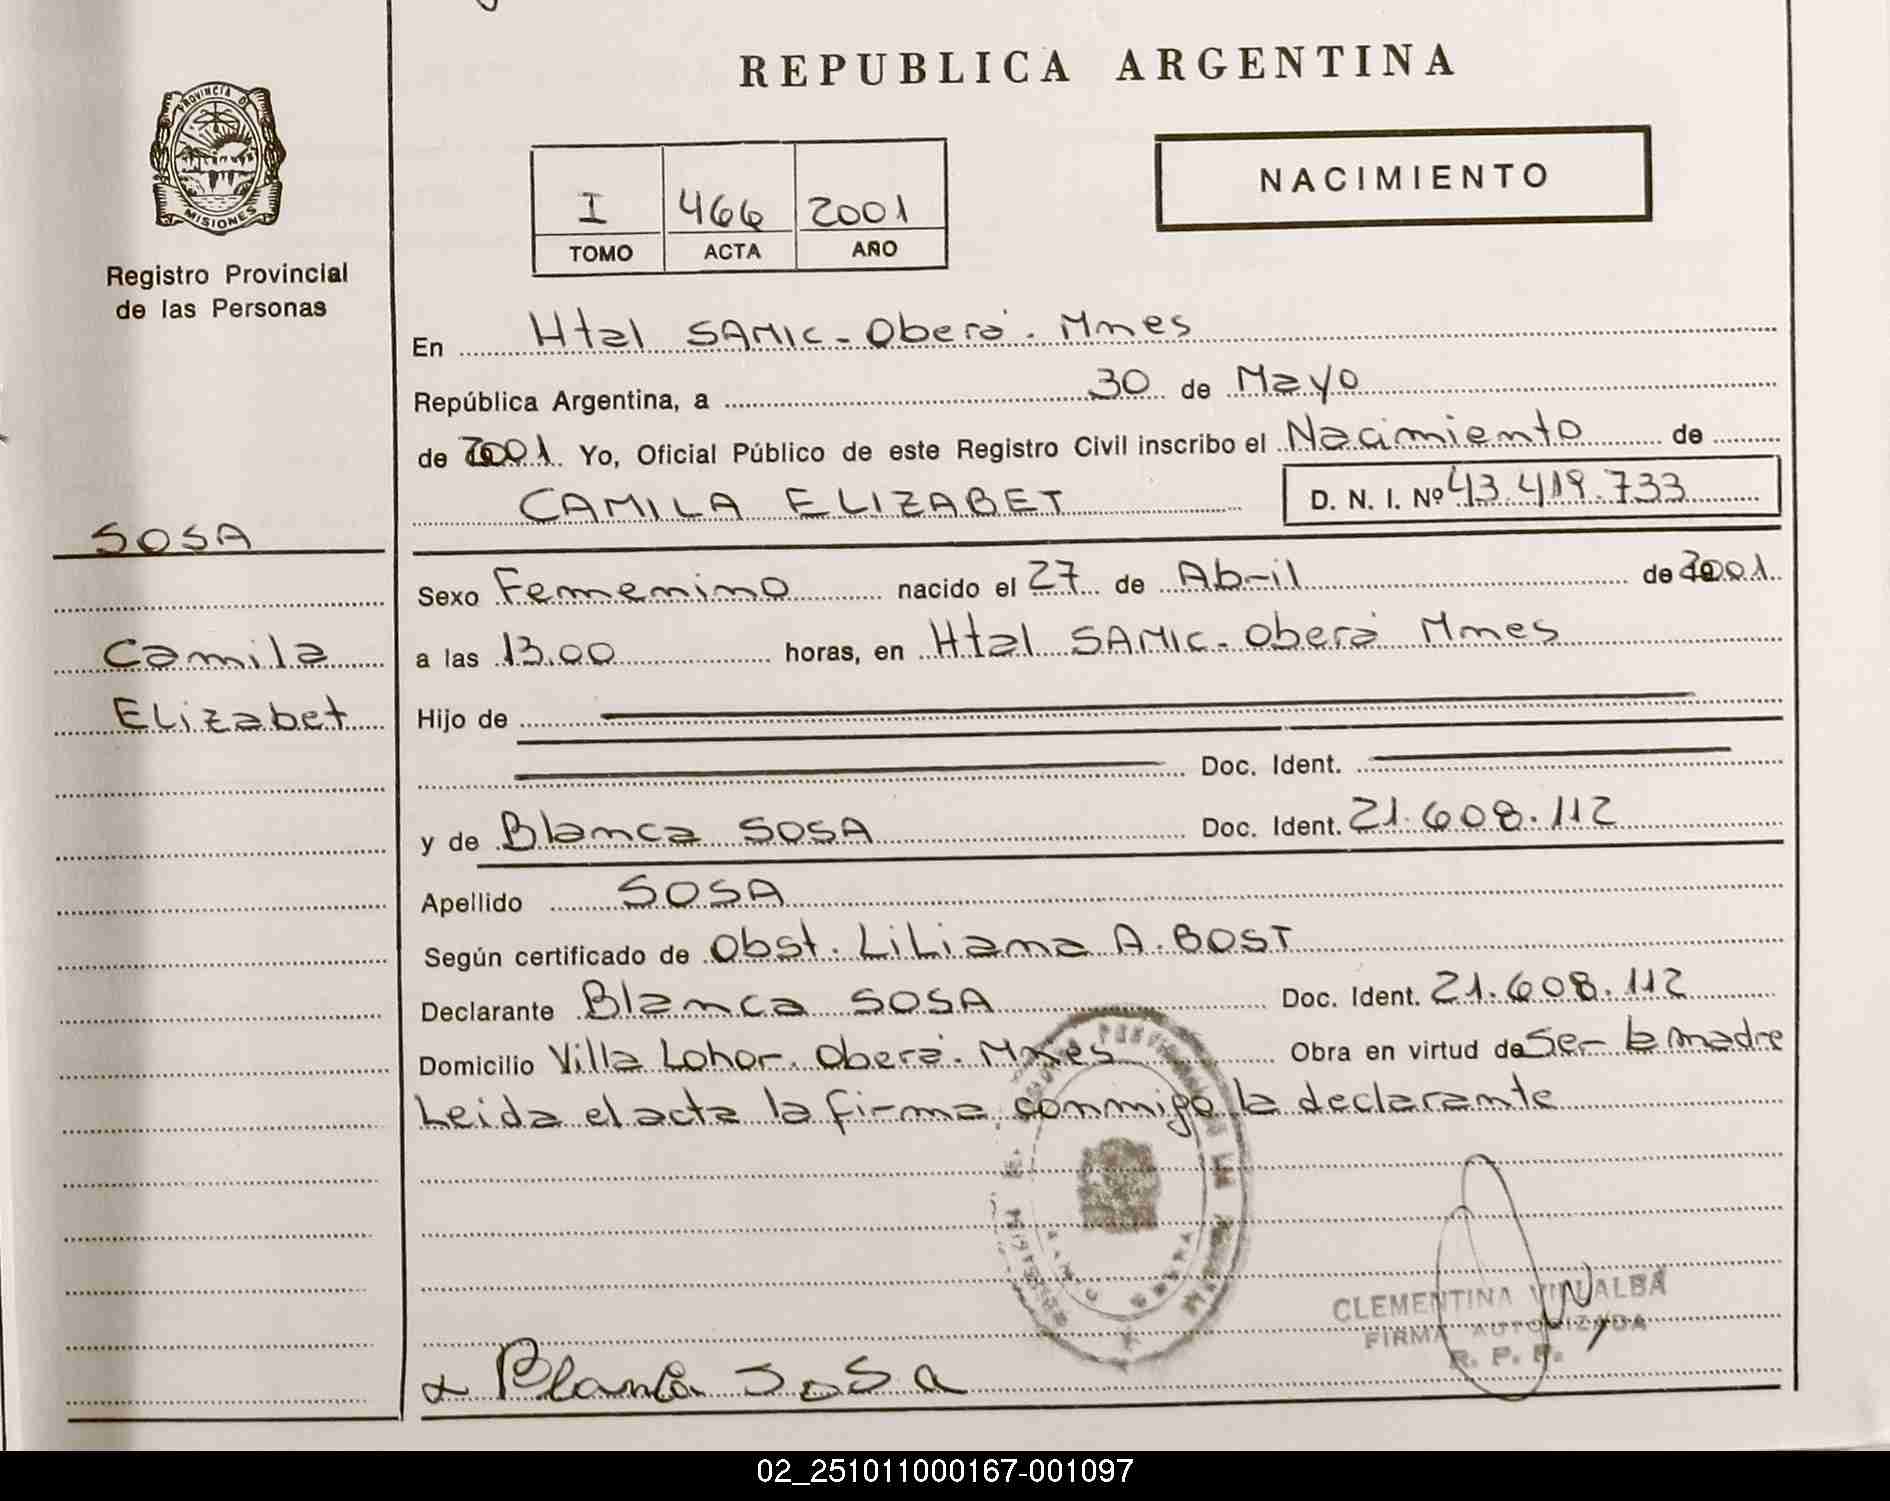 REPUBLICA ARGENTINA
PROVINCIA DE
MISIONES
Registro Provincial
de las Personas
NACIMIENTO
I 466 2001
TOMO ACTA AÑO
En Htal SAMIC - Oberá. Mnes
República Argentina, a 30 de Mayo
de 2001. Yo, Oficial Público de este Registro Civil inscribo el Nacimiento de
CAMILA ELIZABET D. N. I. Nº 43.419.733
SOSA
Camila
Elizabet
Sexo Femenino nacido el 27 de Abril de 2001.
a las 13.00 horas, en Htal SAMIC - Oberá Mnes
Hijo de
Doc. Ident.
y de Blanca SOSA Doc. Ident. 21.608.112
Apellido SOSA
Según certificado de Obst. Liliana A. BOST
Declarante Blanca SOSA Doc. Ident. 21.608.112
Domicilio Villa Lohor. Oberá. Mnes Obra en virtud de Ser la madre
Leida el acta la firma conmigo la declarante
CLEMENTINA VILLALBA
FIRMA AUTORIZADA
R. P. P.
Blanca SoSa
02_251011000167-001097